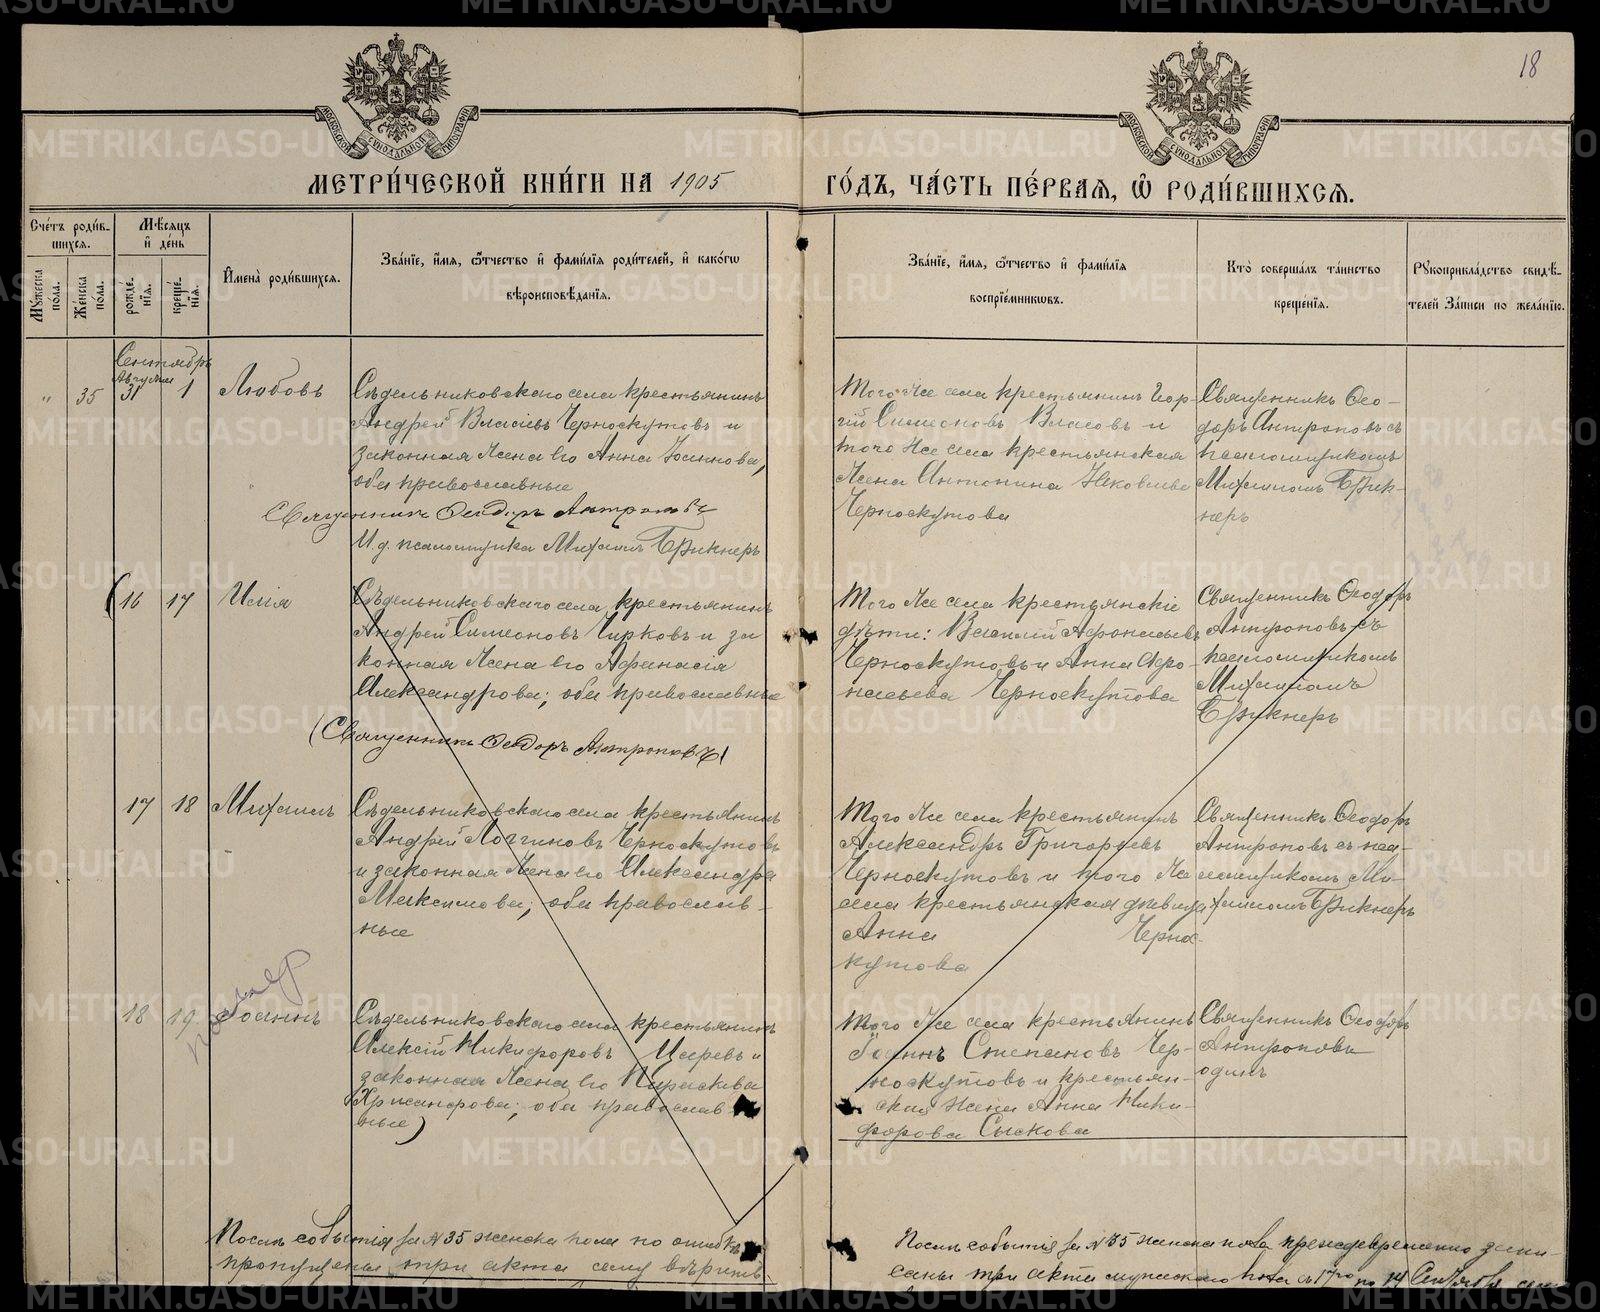 18
МЕТРИ́ЧЕСКОЙ КНИ́ГИ НА 1905
ГО́ДЪ, ЧА́СТЬ ПЕ́РВАѦ, Ѽ РОДИ́ВШИХСѦ.
МОСКОВСКОЙ СУНОДАЛЬНОЙ ТИПОГРАФІИ
МОСКОВСКОЙ СУНОДАЛЬНОЙ ТИПОГРАФІИ
Сче́тъ роди́вшихсѧ.
Мꙋ́жеска по́ла.
Же́нска по́ла.
Мѣ́сѧцъ и҆ де́нь
рожде́нїѧ.
креще́нїѧ.
И҆мена̀ роди́вшихсѧ.
Зва́нїе, и҆́мѧ, ѻ҆́тчество и҆ фами́лїѧ роди́телей, и҆ како́гѡ
вѣроисповѣ́данїѧ.
Зва́нїе, и҆́мѧ, ѻ҆́тчество и҆ фами́лїѧ
воспрїе́мникѡвъ.
Кто̀ соверша́лъ та́инство
креще́нїѧ.
Рꙋкоприкла́дство свидѣ́-
телей за́писи по жела́нїю.
Сентябрь
Августа
„ 35 31 1 Любовь
Сѣдельниковскаго села крестьянинъ
Андрей Власіевъ Черноскутовъ и
законная жена его Анна Іоаннова,
оба православные
Священникъ Ѳеодоръ Антроповъ
И.д. псаломщика Михаилъ Брикнеръ
Того же села крестьянинъ Геор-
гій Симеоновъ Власовъ и
того же села крестьянская
жена Антонина Яковлева
Черноскутова
Священникъ Ѳео-
доръ Антроповъ съ
псаломщикомъ
Михаиломъ Брик-
неръ
16 17 Илія
Сѣдельниковскаго села крестьянинъ
Андрей Симеоновъ Чирковъ и за
конная жена его Афанасія
Александрова; оба православные
(Священникъ Ѳеодоръ Антроповъ)
Того же села крестьянскіе
дѣти: Василій Афонасьевъ
Черноскутовъ и Анна Афо-
насьева Черноскутова
Священникъ Ѳеодоръ
Антроповъ съ
псаломщикомъ
Михаиломъ
Брикнеръ
17 18 Михаилъ
Сѣдельниковскаго села крестьянинъ
Андрей Логгиновъ Черноскутовъ
и законная жена его Александра
Максимова; оба православ-
ные
Того же села крестьянинъ
Александръ Григорьевъ
Черноскутовъ и того же
села крестьянская дѣвица
Анна Чернос-
кутова
Священникъ Ѳеодоръ
Антроповъ съ пса-
ломщикомъ Ми-
хаиломъ Брикнеръ
18 19 Іоаннъ
Сѣдельниковскаго села крестьянинъ
Алексій Никифоровъ Царевъ и
законная жена его Параскева
Хрисанфова; оба православ
ные)
Того же села крестьянинъ
Іоаннъ Степановъ Чер-
носкутовъ и крестьян-
ская жена Анна Ники-
форова Сыскова
Священникъ Ѳеодоръ
Антроповъ
одинъ
Послѣ событія за № 35 женска пола по ошибкѣ
пропущены три акта сему вѣрить
Послѣ событія за № 35 женска пола преждевременно запи-
саны три акта мужескаго пола съ 17го по 19 Сентября
METRIKI.GASO-URAL.RU